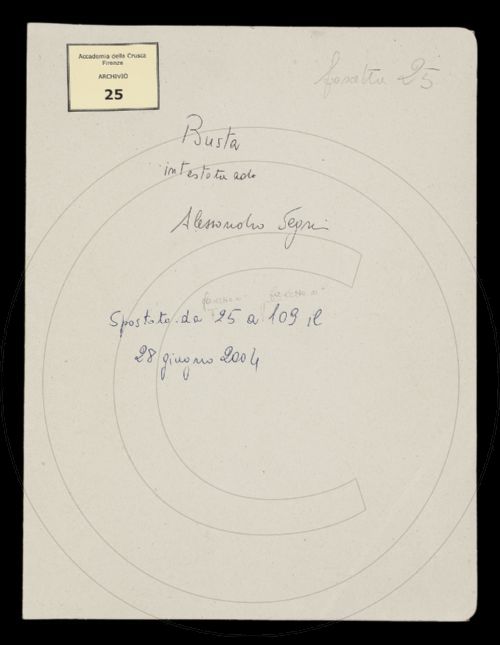 Accademia della Crusca
Firenze
ARCHIVIO
25
25
Busta
intestata ad
Alessandro Segni
Spostata da 25 a 109 il
28 giugno 2004